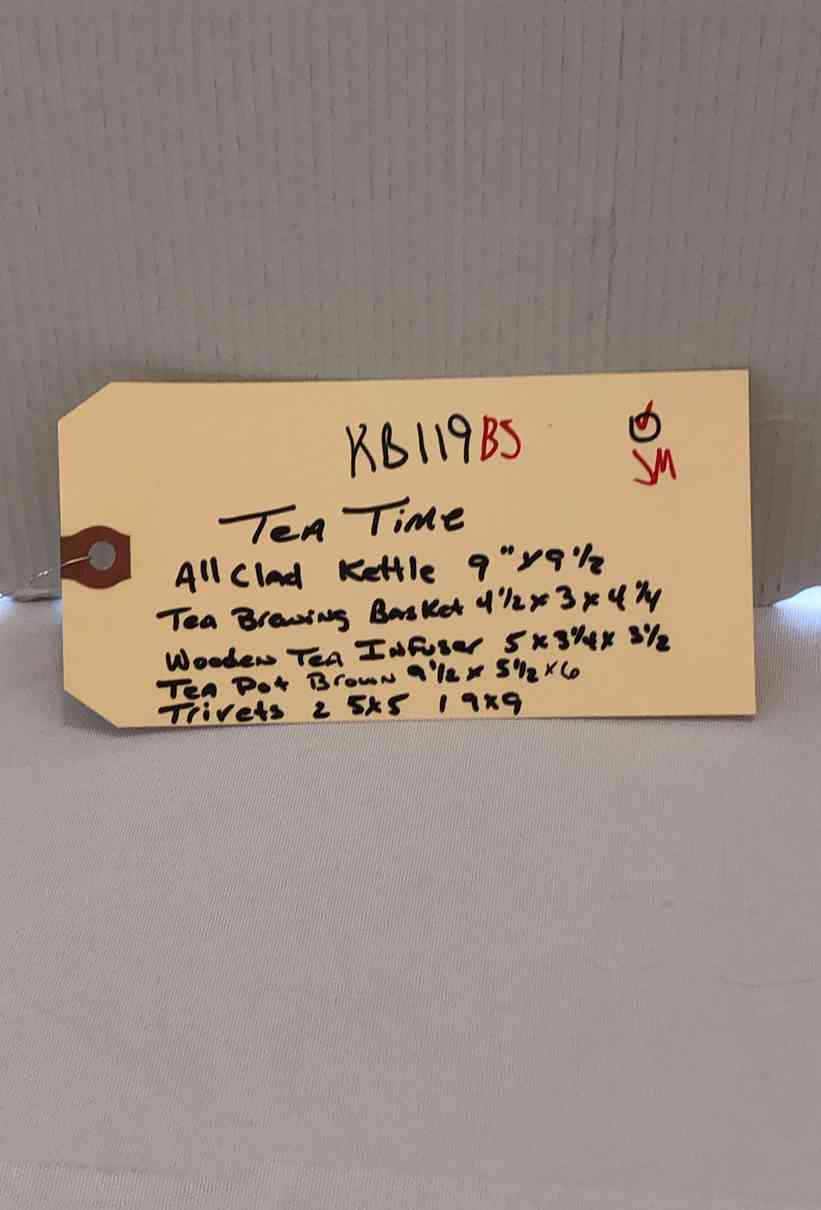 KB119BS
JM
Tea Time
All Clad Kettle 9" x 9 1/2
Tea Brewing Basket 4 1/2 x 3 x 4 1/4
Wooden Tea Infuser 5 x 3 1/4 x 3 1/2
Tea Pot Brown 9 1/2 x 5 1/2 x 6
Trivets 2 5x5 1 9x9